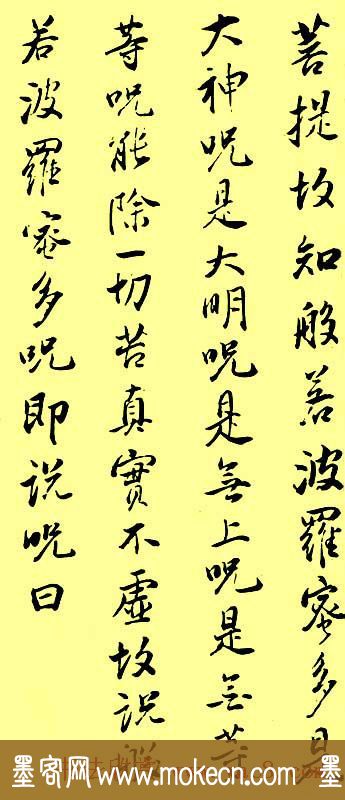 菩提故知般若波羅蜜多是
大神呪是大明呪是無上呪是無等
等呪能除一切苦真實不虛故説
若波羅蜜多呪即説呪曰
墨客网 www.mokecn.com 墨